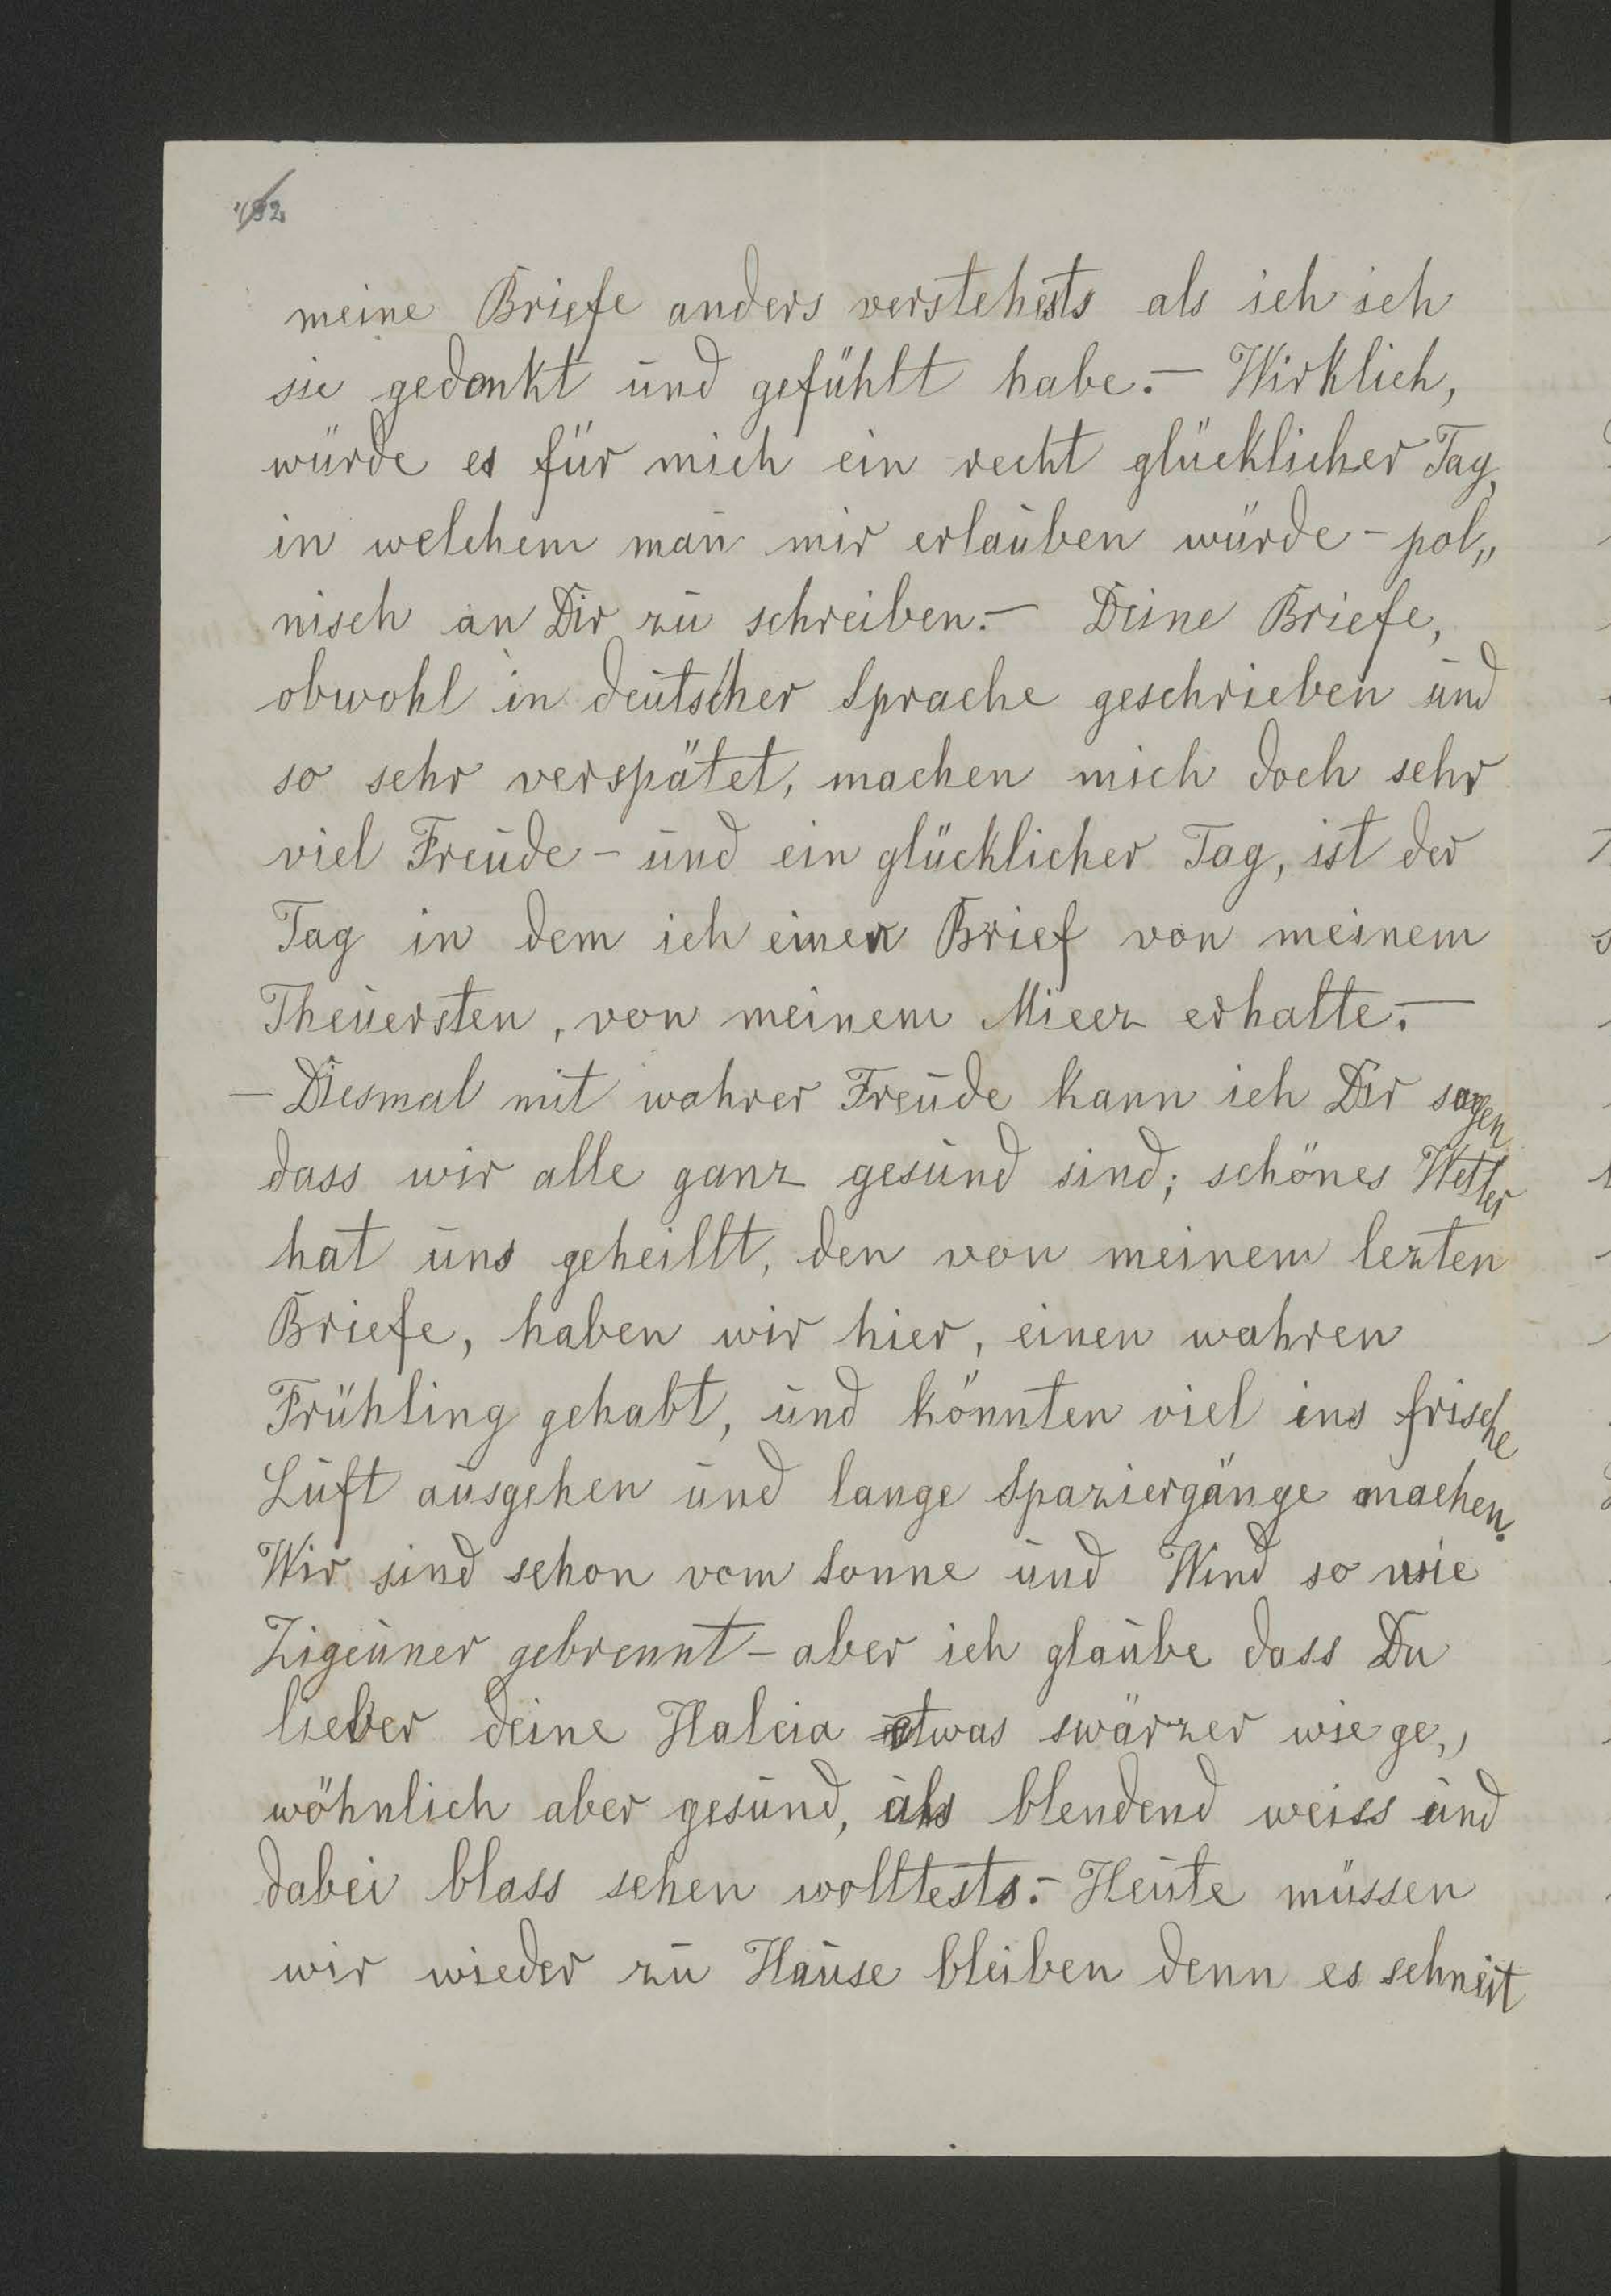 meine Briefe anders verstehests als ich ich
sie gedankt und gefühlt habe.— Wirklich,
würde es für mich ein recht glücklicher Tag,
in welchem man mir erlauben würde - pol„
nisch an Dir zu schreiben.— Deine Briefe,
obwohl in deutscher Sprache geschrieben und
so sehr verspätet, machen mich doch sehr
viel Freude - und ein glücklicher Tag, ist der
Tag in dem ich einen Brief von meinem
Theuersten, von meinem Miecz erhalte.—
— Diesmal mit wahrer Freude kann ich Dir sagen
dass wir alle ganz gesund sind; schönes Wetter
hat uns geheillt, den von meinem lezten
Briefe, haben wir hier, einen wahren
Frühling gehabt, und könnten viel ins frische
Luft ausgehen und lange Spaziergänge machen.
Wir sind schon vom Sonne und Wind so wie
Zigeuner gebrennt - aber ich glaube dass Du
lieber deine Halcia etwas swärzer wie ge„
wöhnlich aber gesund, als blendend weiss und
dabei blass sehen wolltests.— Heute müssen
wir wieder zu Hause bleiben denn es schneit